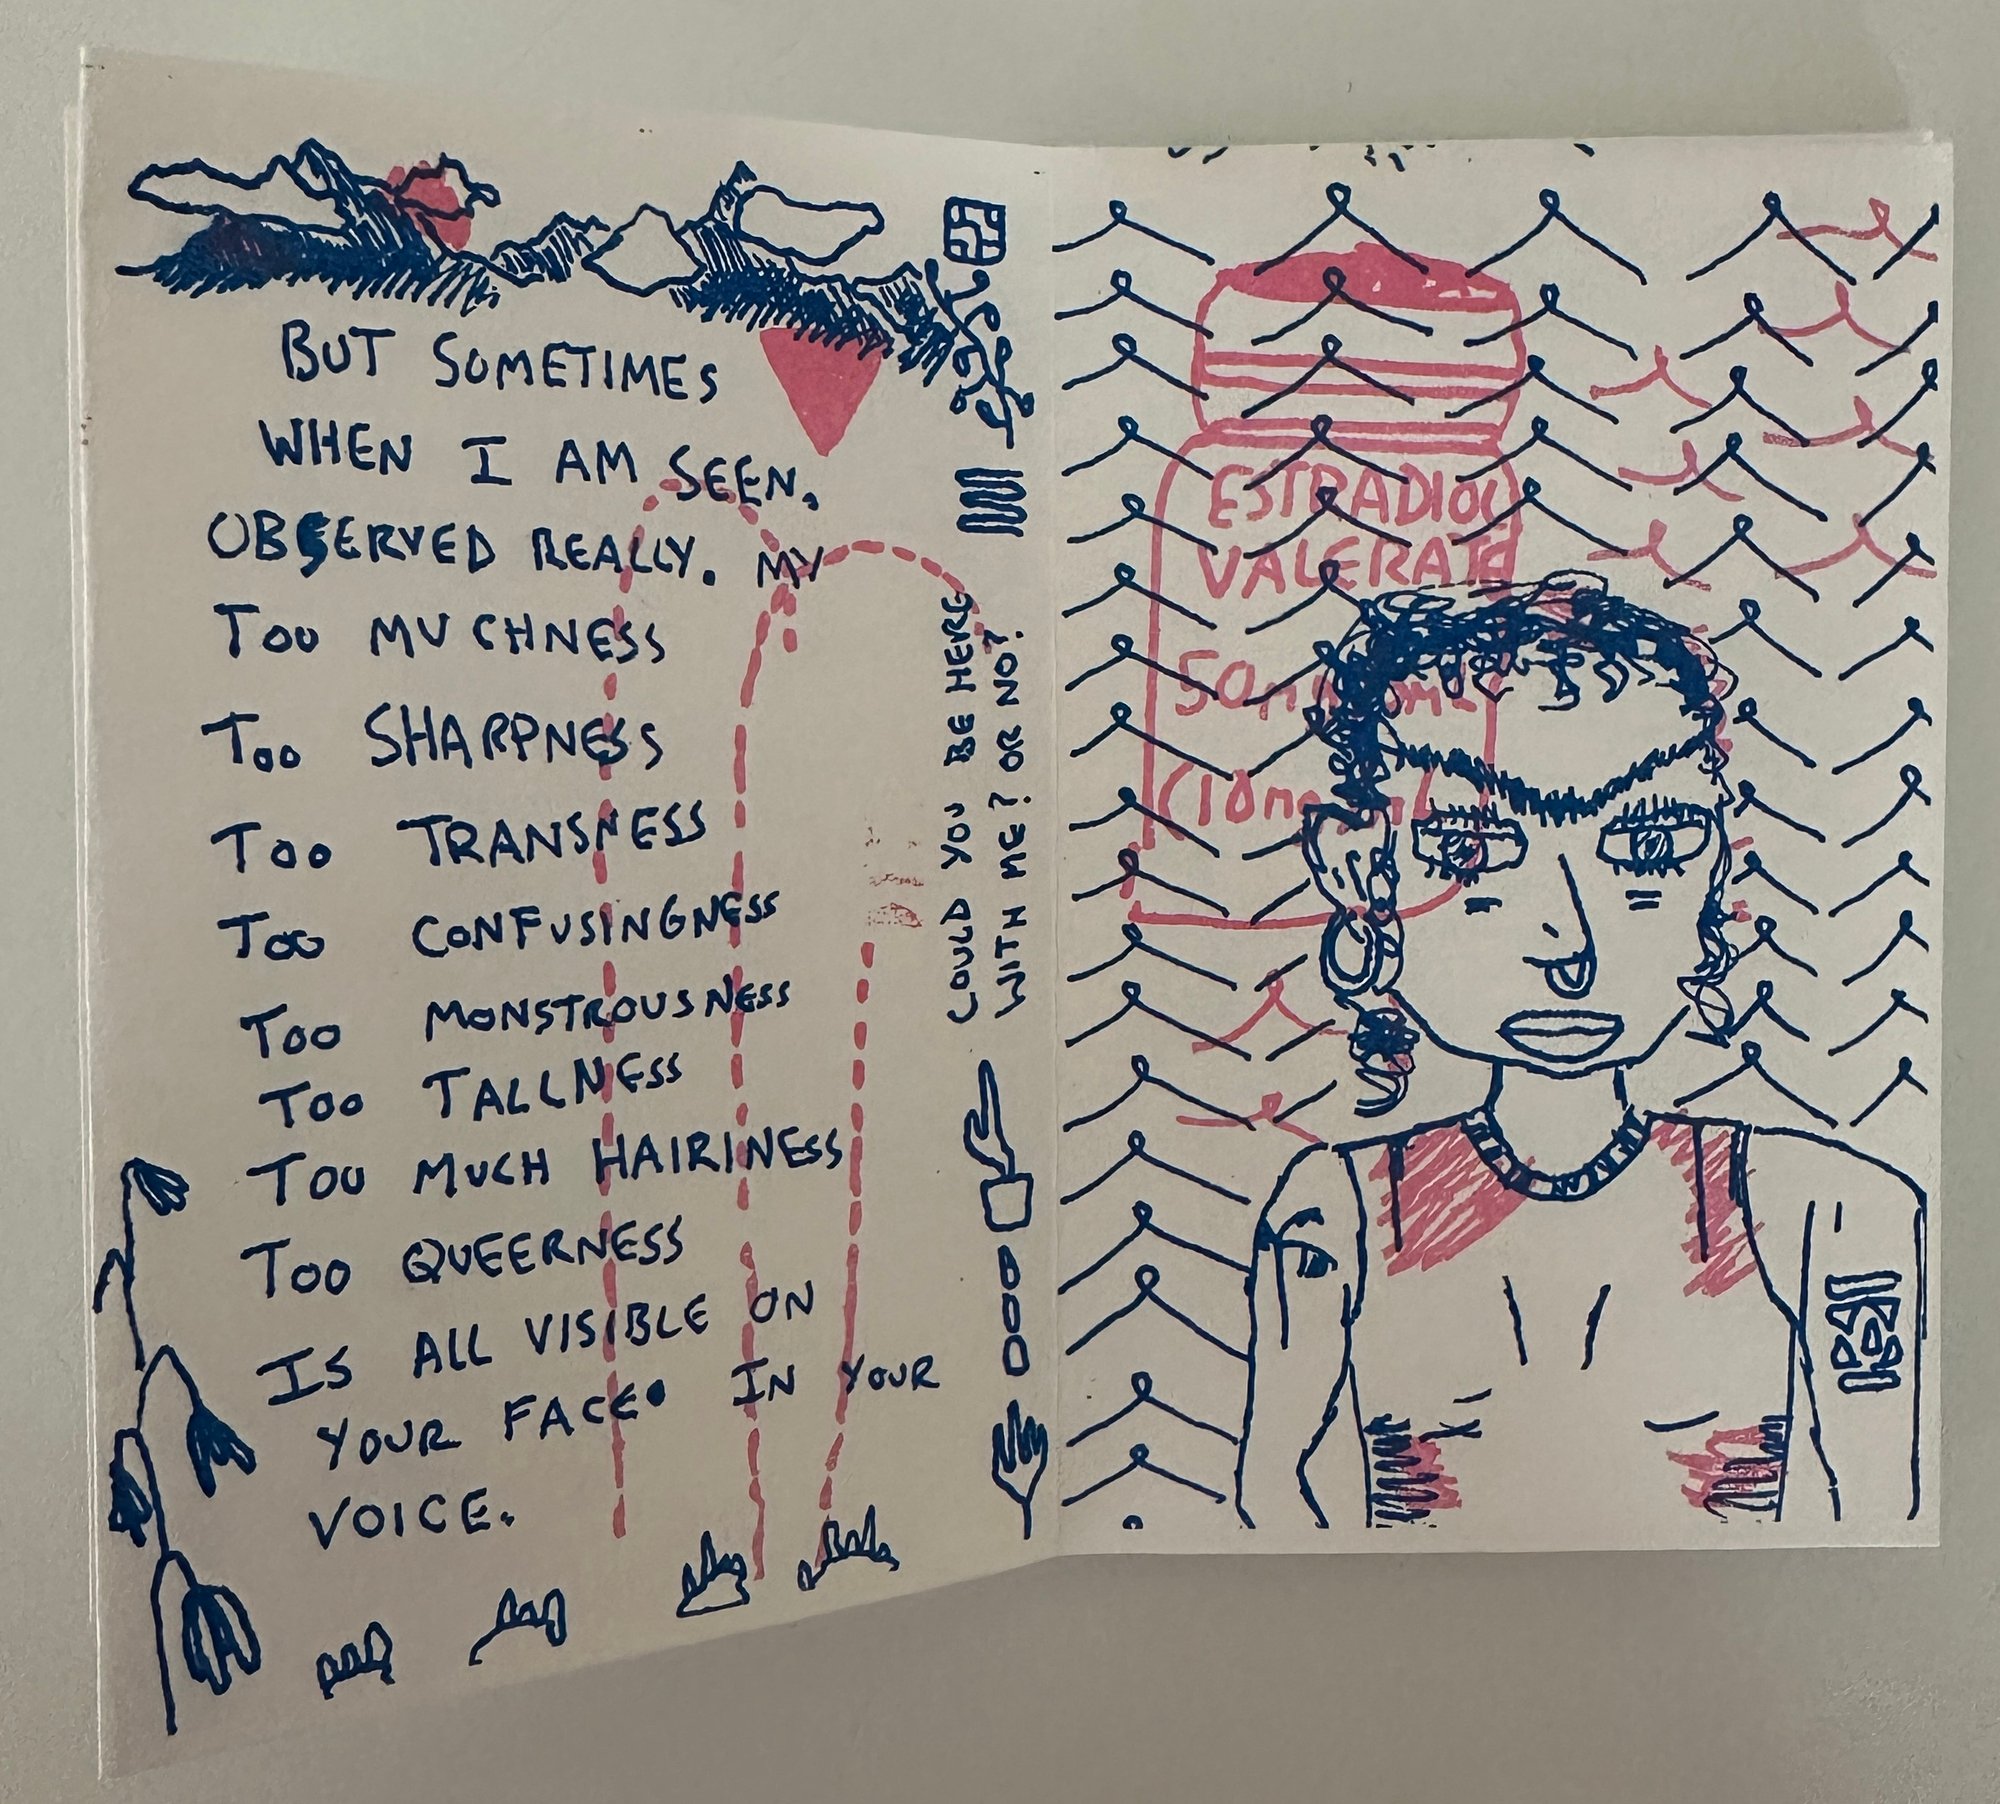 BUT SOMETIMES
WHEN I AM SEEN,
OBSERVED REALLY. MY
TOO MUCHNESS
TOO SHARPNESS
TOO TRANSNESS
TOO CONFUSINGNESS
TOO MONSTROUSNESS
TOO TALLNESS
TOO MUCH HAIRINESS
TOO QUEERNESS
IS ALL VISIBLE ON
YOUR FACE. IN YOUR
VOICE.
COULD YOU BE HERE
WITH ME? OR NO?
ESTRADIOL
VALERATE
50
(10mg